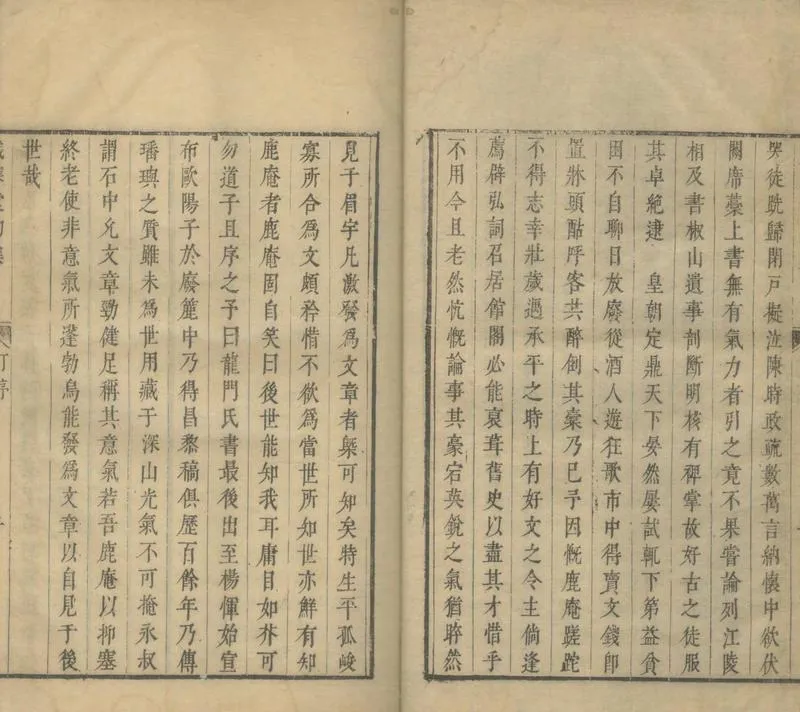 哭徒跣歸閉戶擬泣陳時政疏數萬言納懷中欲伏
闕席藁上書無有氣力者引之竟不果嘗論列江陵
相及書椒山遺事剖斷明核有裨掌故好古之徒服
其卓絶逮 皇朝定鼎天下晏然屡試輒下第益貧
困不自聊日放廢從酒人遊狂歌市中得賣文錢卽
置牀頭酤呼客共醉倒其橐乃已予因慨鹿庵蹉跎
不得志幸壯歲遇承平之時上有好文之令主倘逢
薦辟弘詞召居館閣必能裒葺舊史以盡其才惜乎
不用今且老然忼慨論事其豪宕英銳之氣猶睟然
見于眉宇凡激發爲文章者槩可知矣特生平孤峻
寡所合爲文頗矜惜不欲爲當世所知世亦鮮有知
鹿庵者鹿庵固自笑曰後世能知我耳庸目如芥可
勿道子且序之予曰龍門氏書最後出至楊惲始宣
布歐陽子於廢簏中乃得昌黎稿俱歷百餘年乃傳
璠璵之質雖未爲世用藏于深山光氣不可掩永叔
謂石中允文章勁健足稱其意氣若吾鹿庵以抑塞
終老使非意氣所蓬勃烏能發爲文章以自見于後
世哉